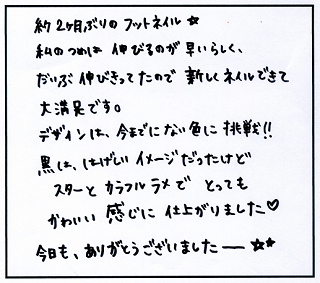 約2ヶ月ぶりのフットネイル☆
私のつめは 伸びるのが早いらしく、
だいぶ伸びきってたので 新しくネイルできて
大満足です。
デザインは、今までにない色に挑戦!!
黒は、はげしいイメージだったけど
スターとカラフルラメで とっても
かわいい感じに仕上がりました♡
今日も、ありがとうございましたー☆★